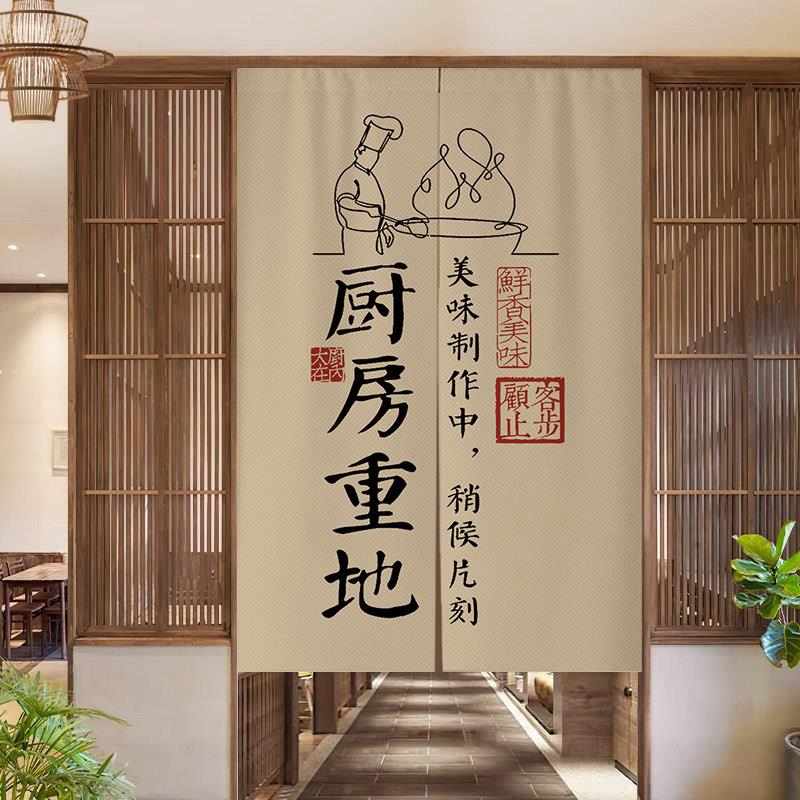 厨房重地
大厨
在内
美味制作中，稍候片刻
鮮香美味
顧客
止步